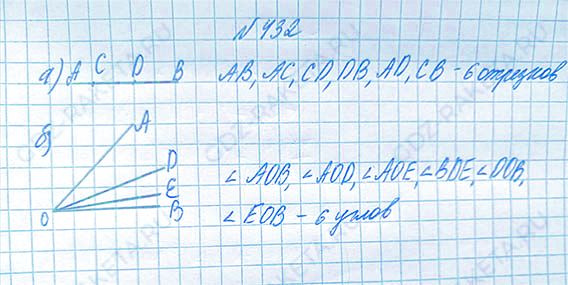 N 432
а) A C D B AB, AC, CD, DB, AD, CB - 6 отрезков
б) A
D
E
B
O
∠ AOB, ∠ AOD, ∠ AOE, ∠ BDE, ∠ DOB,
∠ EOB - 6 углов
GDZ-RAKETA.RU